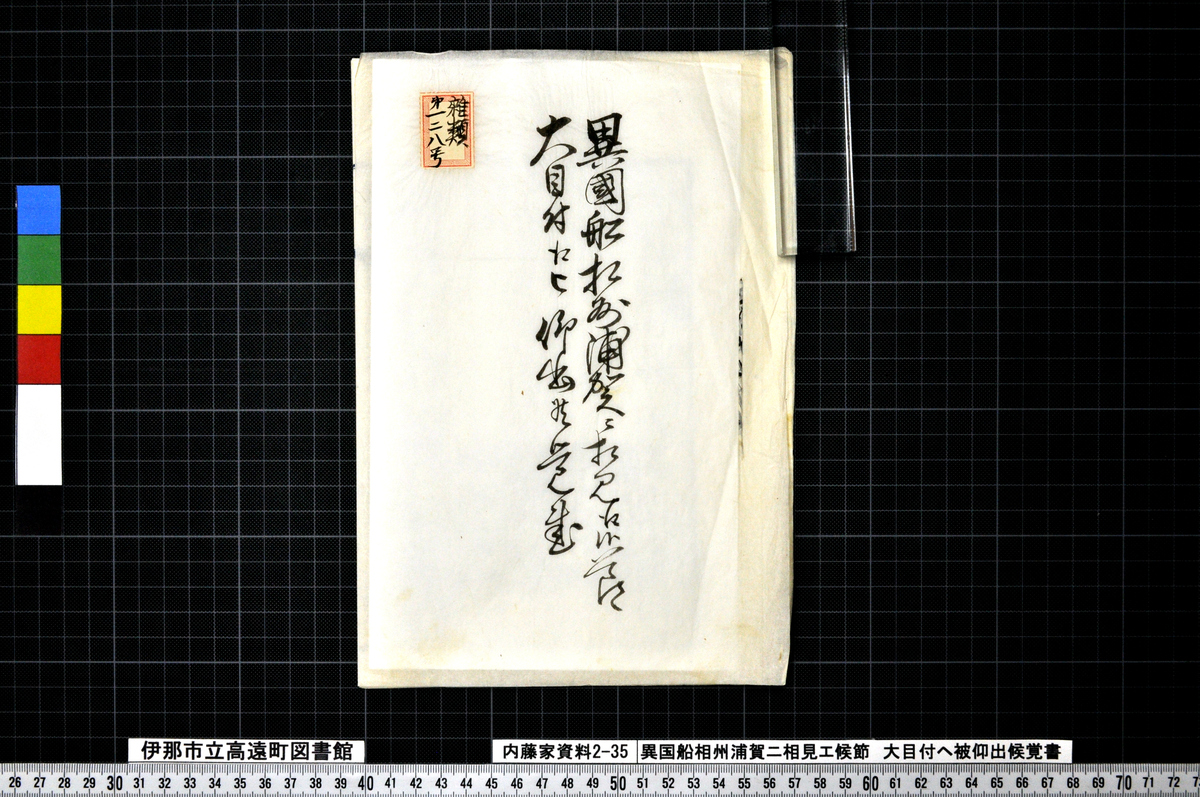 異國船相州浦賀ニ相見江候節
大目付江被 仰出候覚書
雜類
第一二八号
伊那市立高遠町図書館
内藤家資料2-35
異国船相州浦賀ニ相見エ候節 大目付へ被仰出候覚書
26 27 28 29 30 31 32 33 34 35 36 37 38 39 40 41 42 43 44 45 46 47 48 49 50 51 52 53 54 55 56 57 58 59 60 61 62 63 64 65 66 67 68 69 70 71 72